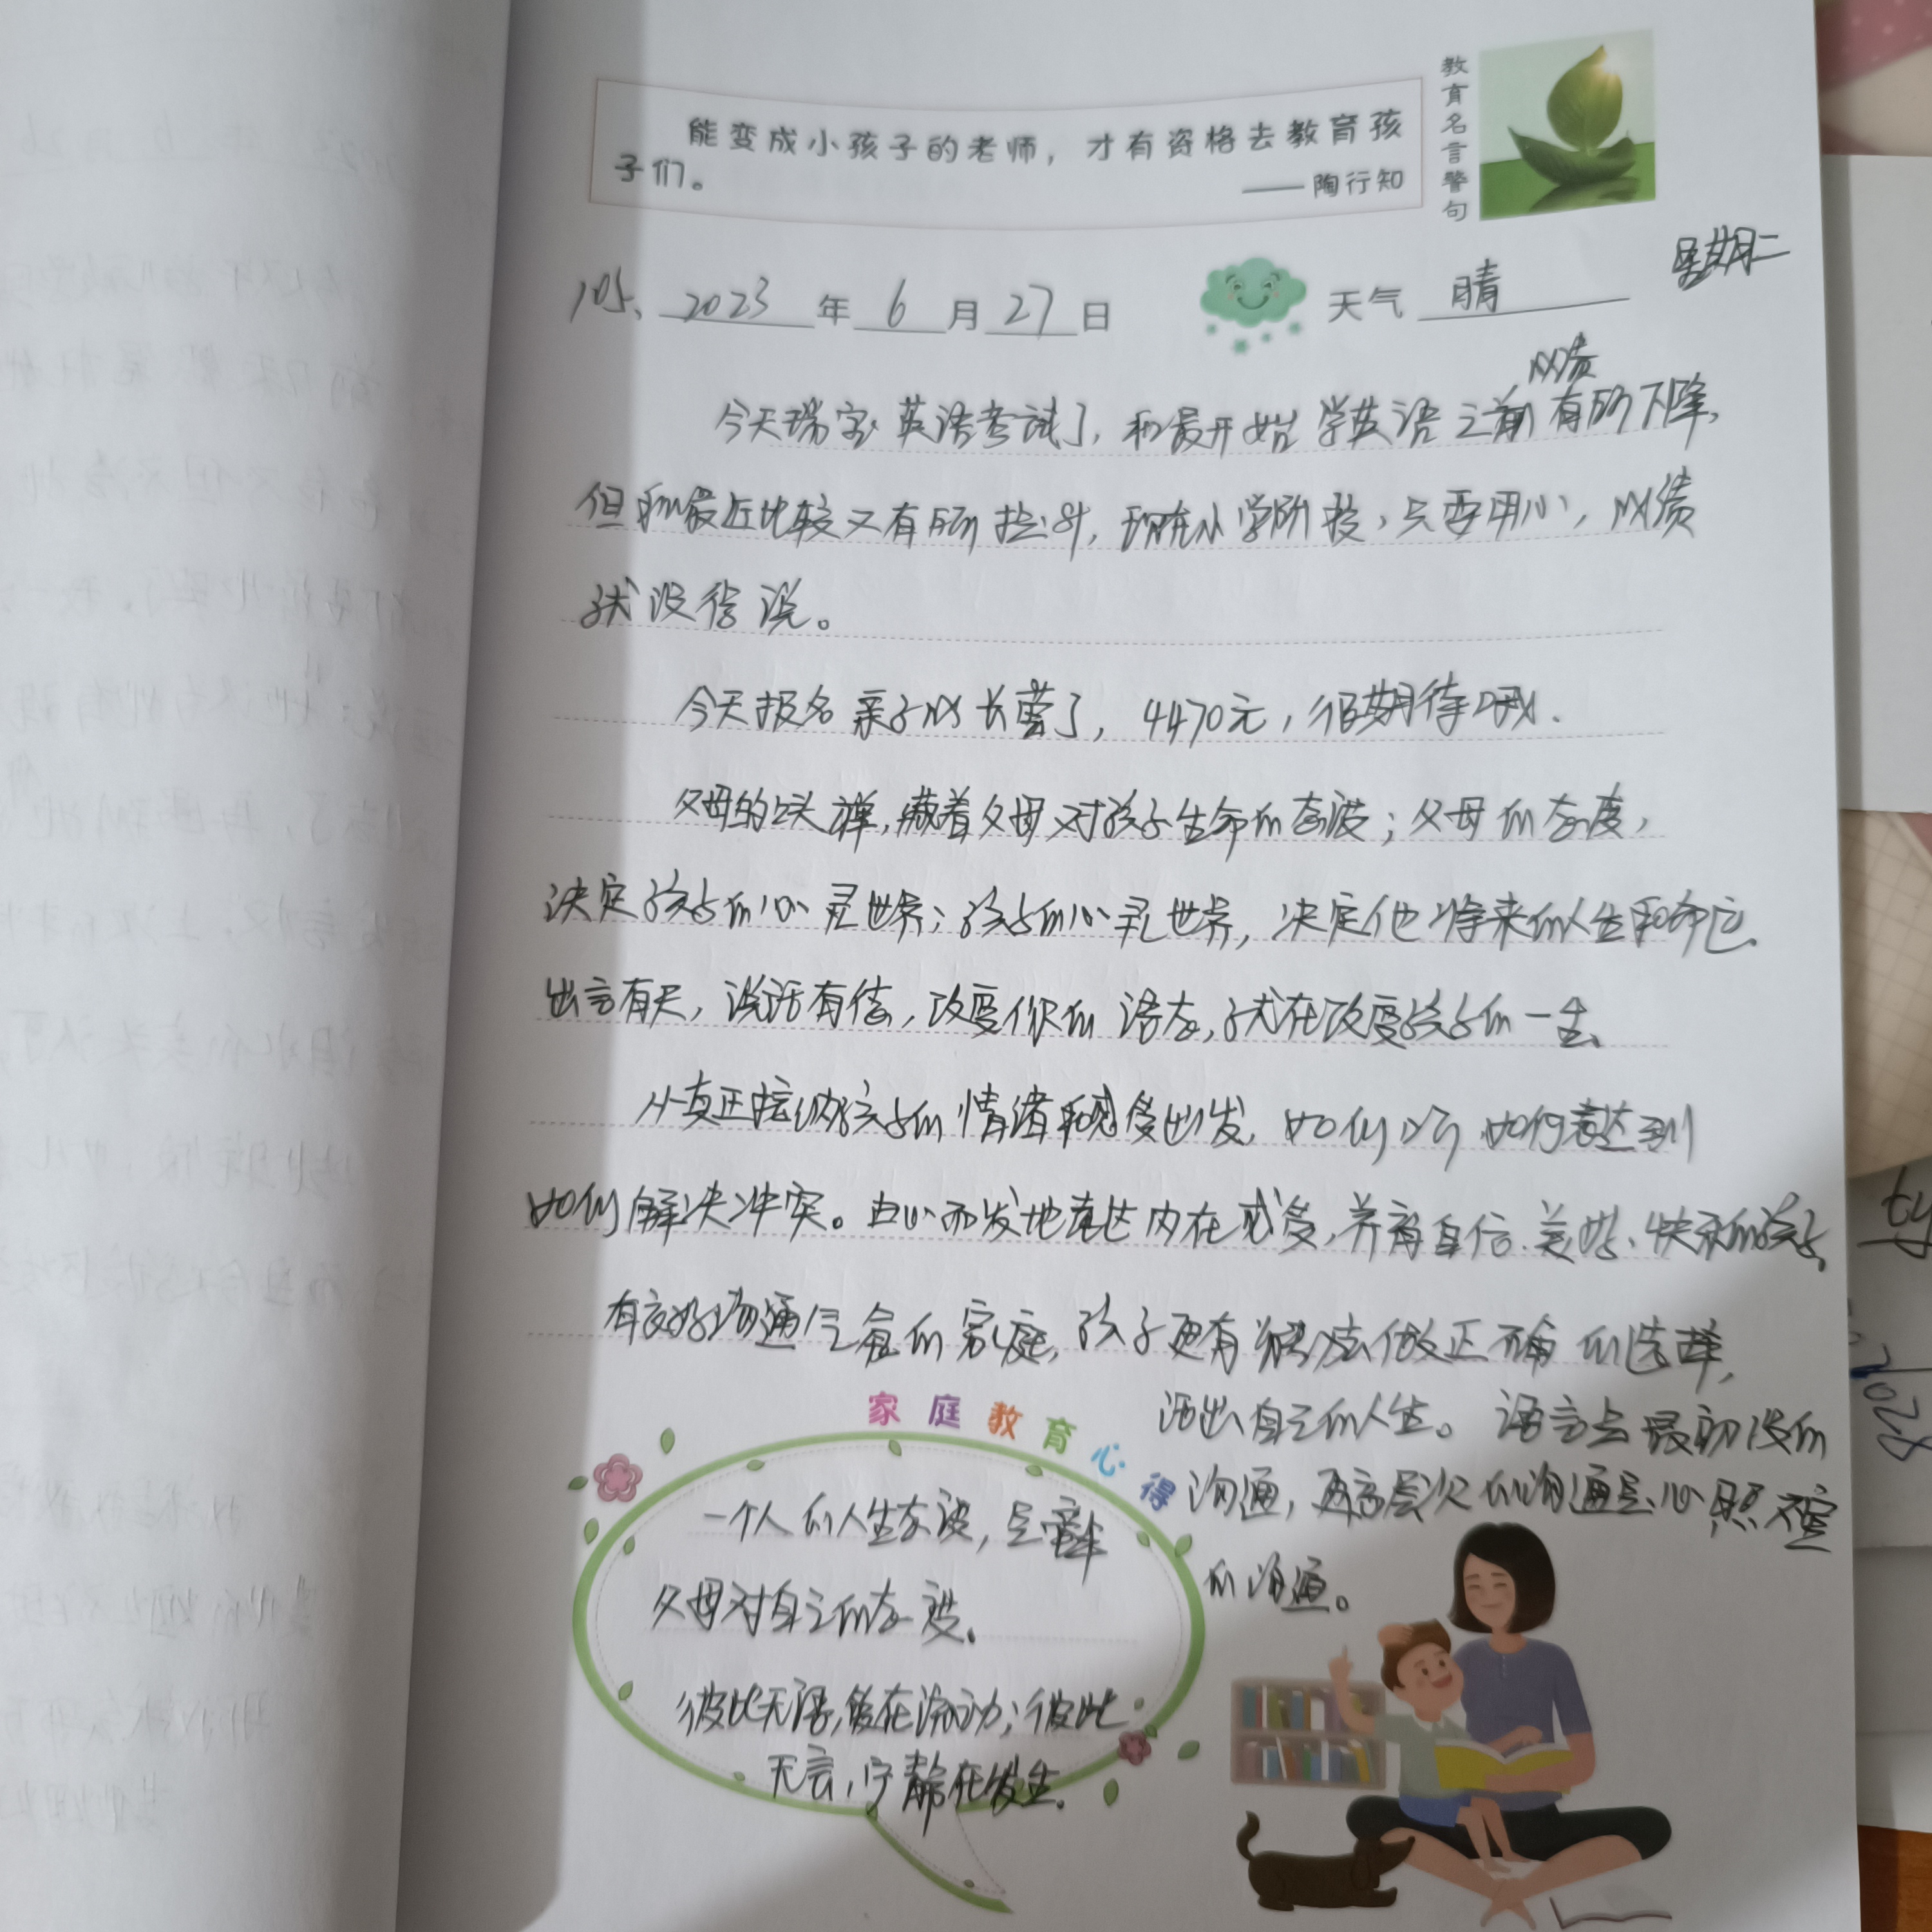 能变成小孩子的老师，才有资格去教育孩
子们。
——陶行知
教育名言警句
星期二
105、2023年6月27日 天气 晴
成绩
今天瑞宝英语考试了，和最开始学英语之前有所下降，
但和最近比较又有所提升，现在小学阶段，只要用心，成绩
就没得说。
今天报名亲子成长营了，4470元，很期待哦.
父母的口头禅，藏着父母对孩子生命的态度；父母的态度，
决定孩子的心灵世界；孩子的心灵世界，决定他将来的人生和命运、
出言有尺，说话有信，改变你的语言，就在改变孩子的一生、
从真正接纳孩子的情绪和感受出发，如何 如何表达到
如何解决冲突。由心而发地表达内在感受，养育自信、美好、快乐的孩子，
有良好沟通气氛的家庭，孩子更有办法做正确的选择，
活出自己的人生。语言是最初级的
沟通，更高层次的沟通是心照不宣
的沟通。
家庭教育心得
一个人的人生态度，是
父母对自己的态度。
彼此无语，爱在流动；彼此
无言，宁静在发生。